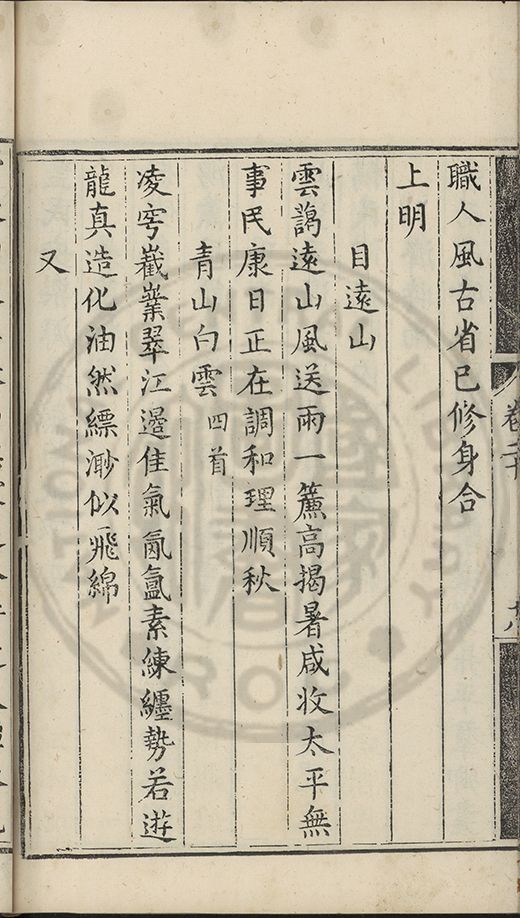 卷二十
職人風古省已修身合
上明
目遠山
雲藹遠山風送雨一簾高揭暑咸收太平無
事民康日正在調和理順秋
青山白雲 四首
凌穹巀嶪翠江邊佳氣氤氳素練纏勢若遊
龍真造化油然縹渺似飛綿
又